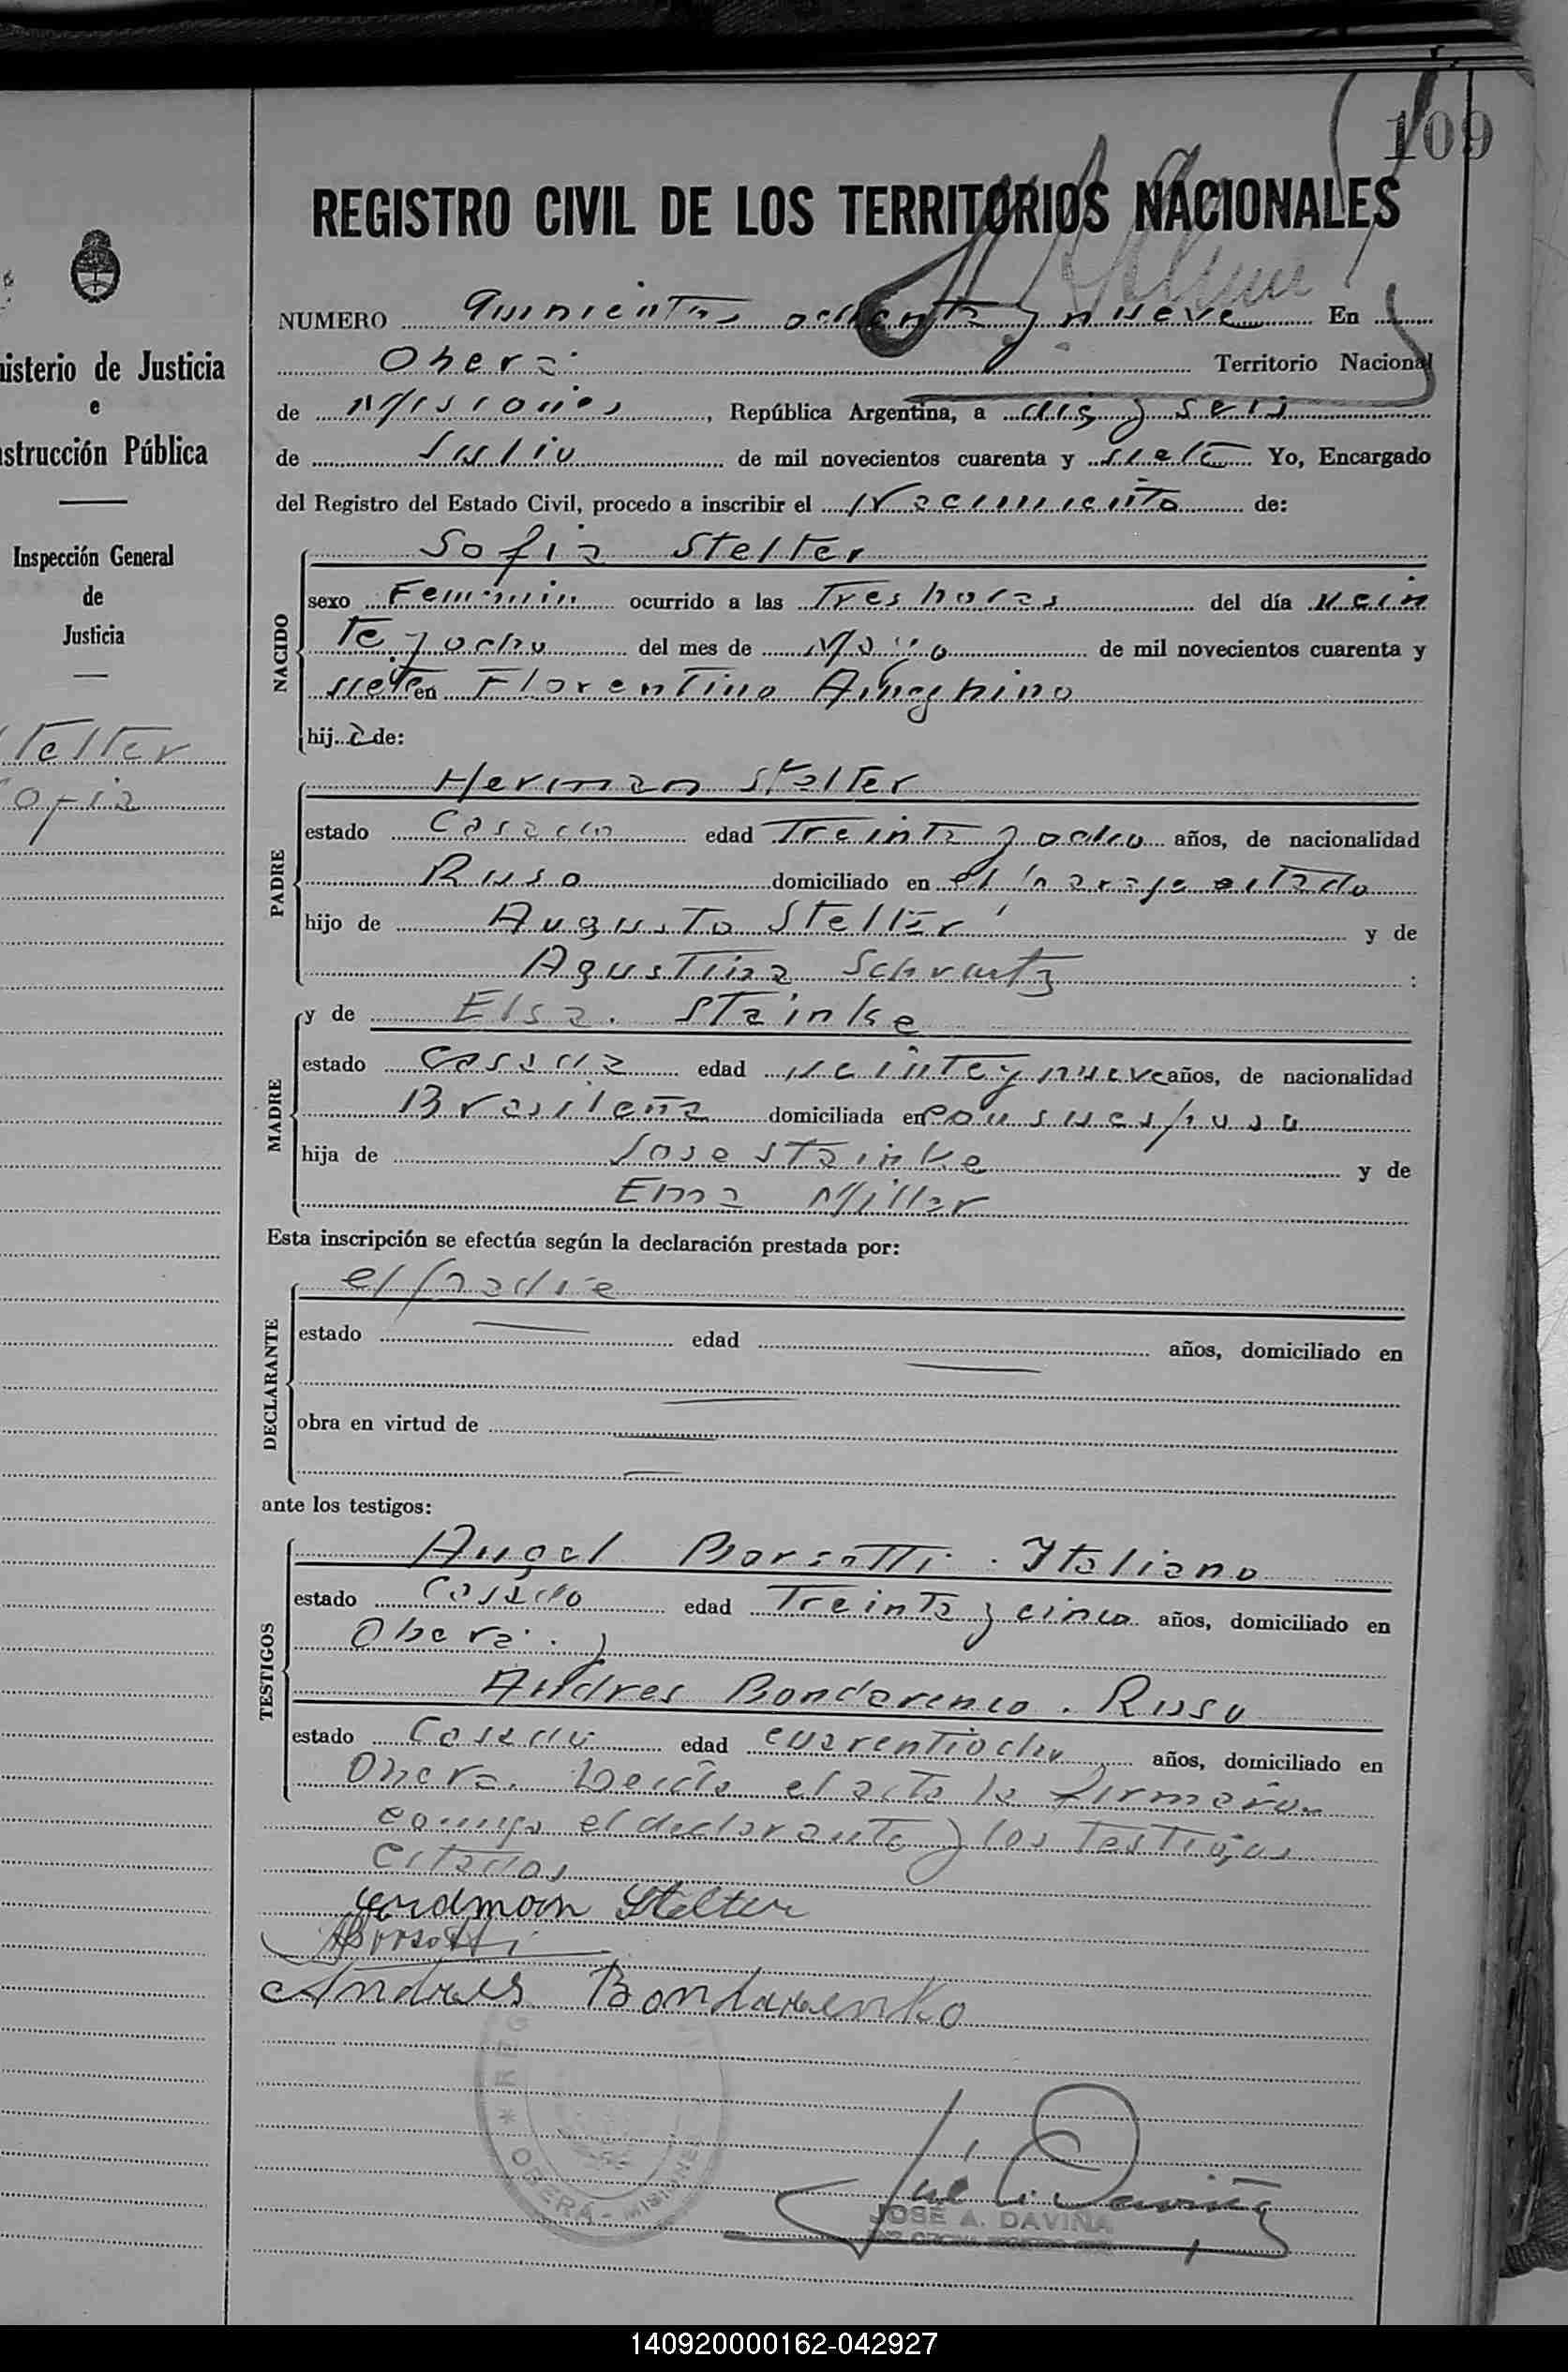 109
REGISTRO CIVIL DE LOS TERRITORIOS NACIONALES
NUMERO Quinientos ochenta y nueve En
Oberá Territorio Nacional
de Misiones, República Argentina, a diez y seis
de Julio de mil novecientos cuarenta y siete Yo, Encargado
del Registro del Estado Civil, procedo a inscribir el Nacimiento de:
Sofia Stelter
NACIDO
sexo Feminin ocurrido a las Tres horas del día vein
te y ocho del mes de Mayo de mil novecientos cuarenta y
siete en Florentino Ameghino
hij a de:
Herman Stelter
PADRE
estado Casado edad Treinta y ocho años, de nacionalidad
Ruso domiciliado en el paraje citado
hijo de Augusto Stelter y de
Agustina Schvartz :
y de Elsa. Stainke
MADRE
estado casada edad veinte y nueve años, de nacionalidad
Brasileña domiciliada en con su esposo
hija de Jose Stainke y de
Ema Miller
Esta inscripción se efectúa según la declaración prestada por:
el padre
DECLARANTE
estado edad años, domiciliado en
obra en virtud de
ante los testigos:
Angel Borsotti. Italiano
TESTIGOS
estado Casado edad Treinta y cinco años, domiciliado en
Oberá. y
Andres Bondarenco. Ruso
estado Casado edad cuarentiocho años, domiciliado en
Oberá. Leida el acta la firmaron
conmigo el declarante y los Testigos
citados
Erdmann Stelter
ABorsotti
Andres Bondarenko
OBERÁ - MISIONES
JOSÉ A. DAVIÑA
nisterio de Justicia
e
strucción Pública
Inspección General
de
Justicia
Stelter
Sofia
140920000162-042927